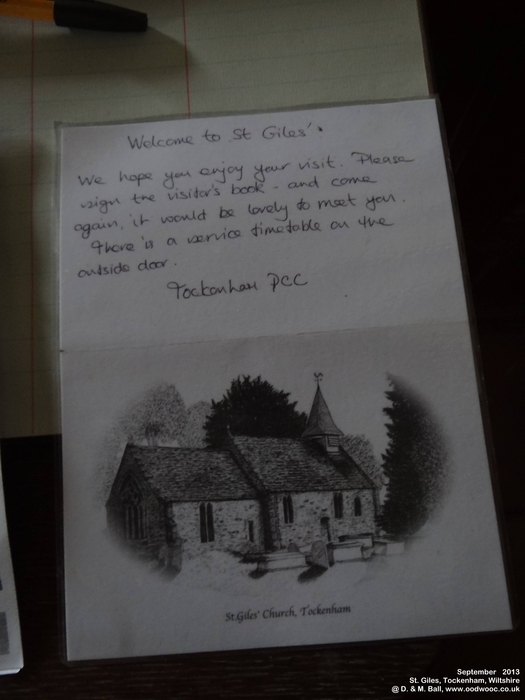 Welcome to St Giles'.
We hope you enjoy your visit. Please
sign the visitor's book - and come
again, it would be lovely to meet you.
There is a service timetable on the
outside door.
Tockenham PCC
St.Giles' Church, Tockenham
September 2013
St. Giles, Tockenham, Wiltshire
@ D. & M. Ball, www.oodwooc.co.uk